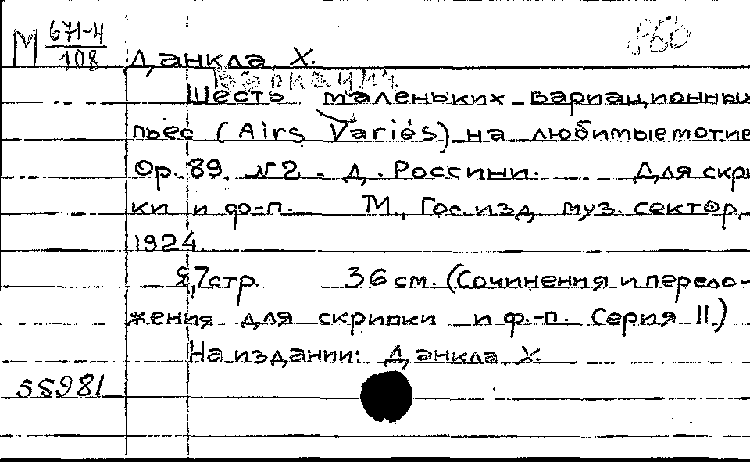 М 671-4/108
Данкла, Х.
Вариации
Шесть маленьких вариационных
пьес (Airs Variés) на любимые мотив
Op. 89. №2. Д. Россини. Для скрип
ки и ф-п. М., Гос. изд. муз. сектор,
1924.
8,7 стр. 36 см. (Сочинения и перело-
жения для скрипки и ф-п. Серия II.)
На издании: Данкла Х.
55981